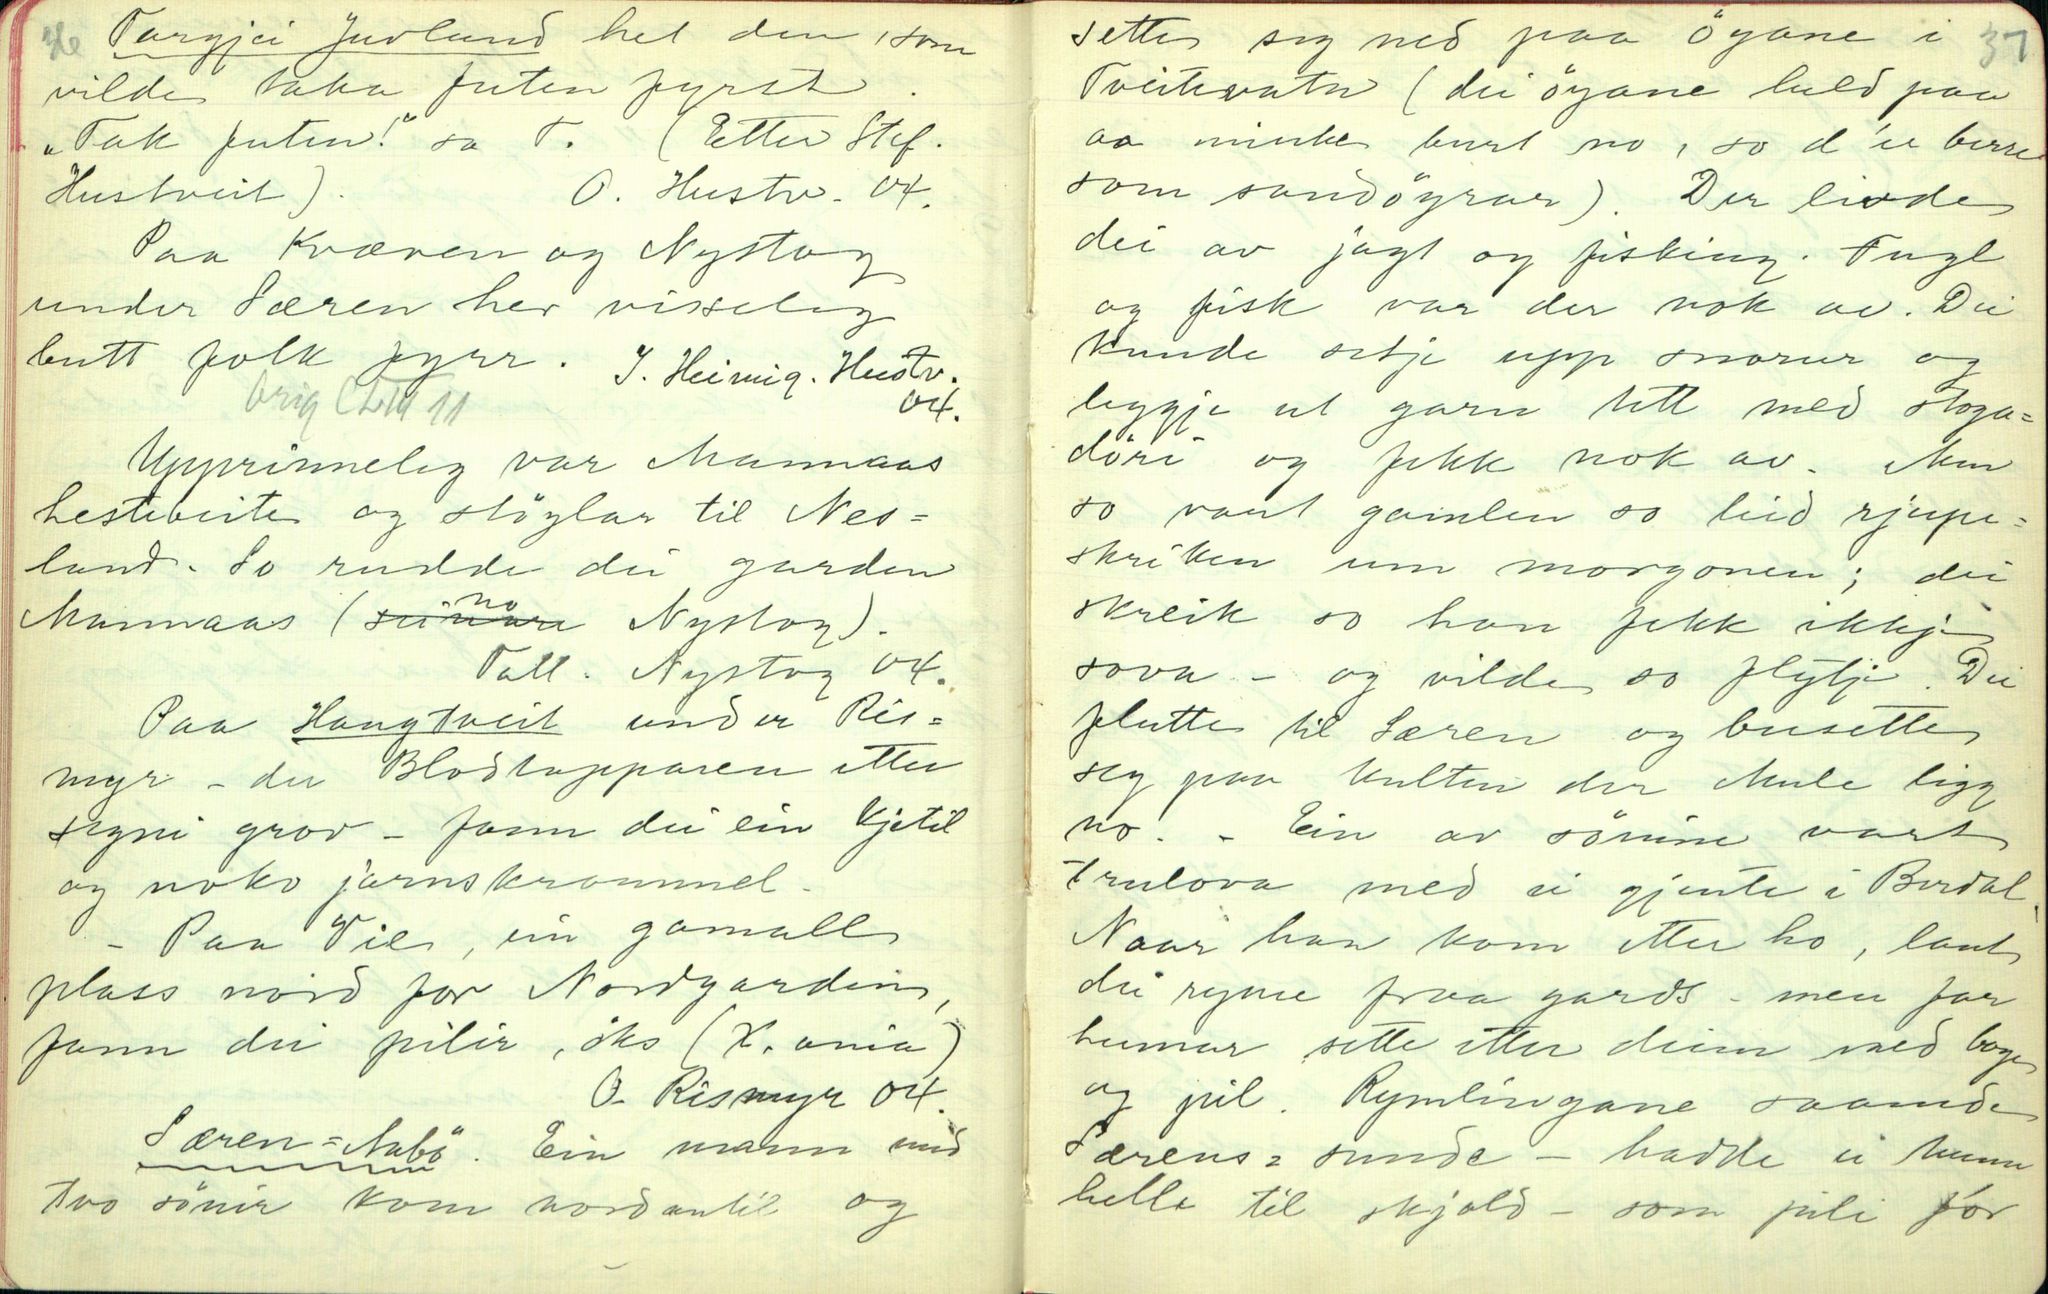 36
Targjei Juvland het den, som
vilde taka futen fyrst.
"Tak futen!" sa T. (Etter Stef.
Hustveit). O. Hustv. 04.
Paa Kvæven og Nystog
under Særen her visseleg
butt folk fyrr. J. Heimig. Hustv.
04.
Upprinneleg var Mannaas
hestebeite og stöylar til Nes=
land. So rudde dei garden
Mannaas (no Nystog).
Tall. Nystog 04.
Paa Haugtveit under Ris=
myr - der Blodtapparen etter
segni grov - fann dei ein kjetil
og noko jarnskrammel.
- Paa Vie, ein gamall
plass nord for Nordgarden,
fann dei pilir, öks (X.ania)
O. Rismyr 04.
Særen=Nabö. Ein mann med
tvo sönir kom nordantil og
37
sette seg ned paa öyane i
Tveitevatn (dei öyane held paa
aa minke burt no, so d'er berre
som sandöyrar). Der livde
dei av jagt og fisking. Fugl
og fisk var der nok av. Dei
kunde setje upp snorur og
leggje ut garn tett med stoga=
döri og fekk nok av. Men
so vart gamlen so leid rjupe=
skriken um morgonen; dei
skreik so han fekk ikkje
sova - og vilde so flytje. Dei
flutte til Særen og busette
seg paa kulten der Mule ligg
no. - Ein av sönine vart
trulova med ei gjente i Berdal.
Naar han kom etter ho, laut
dei ryme fraa gards - men far
hennar sette etter deim med boge
og pil. Rymlingane saamde
Særens=sunde - hadde ei tunn
helle til skjold - som pili for